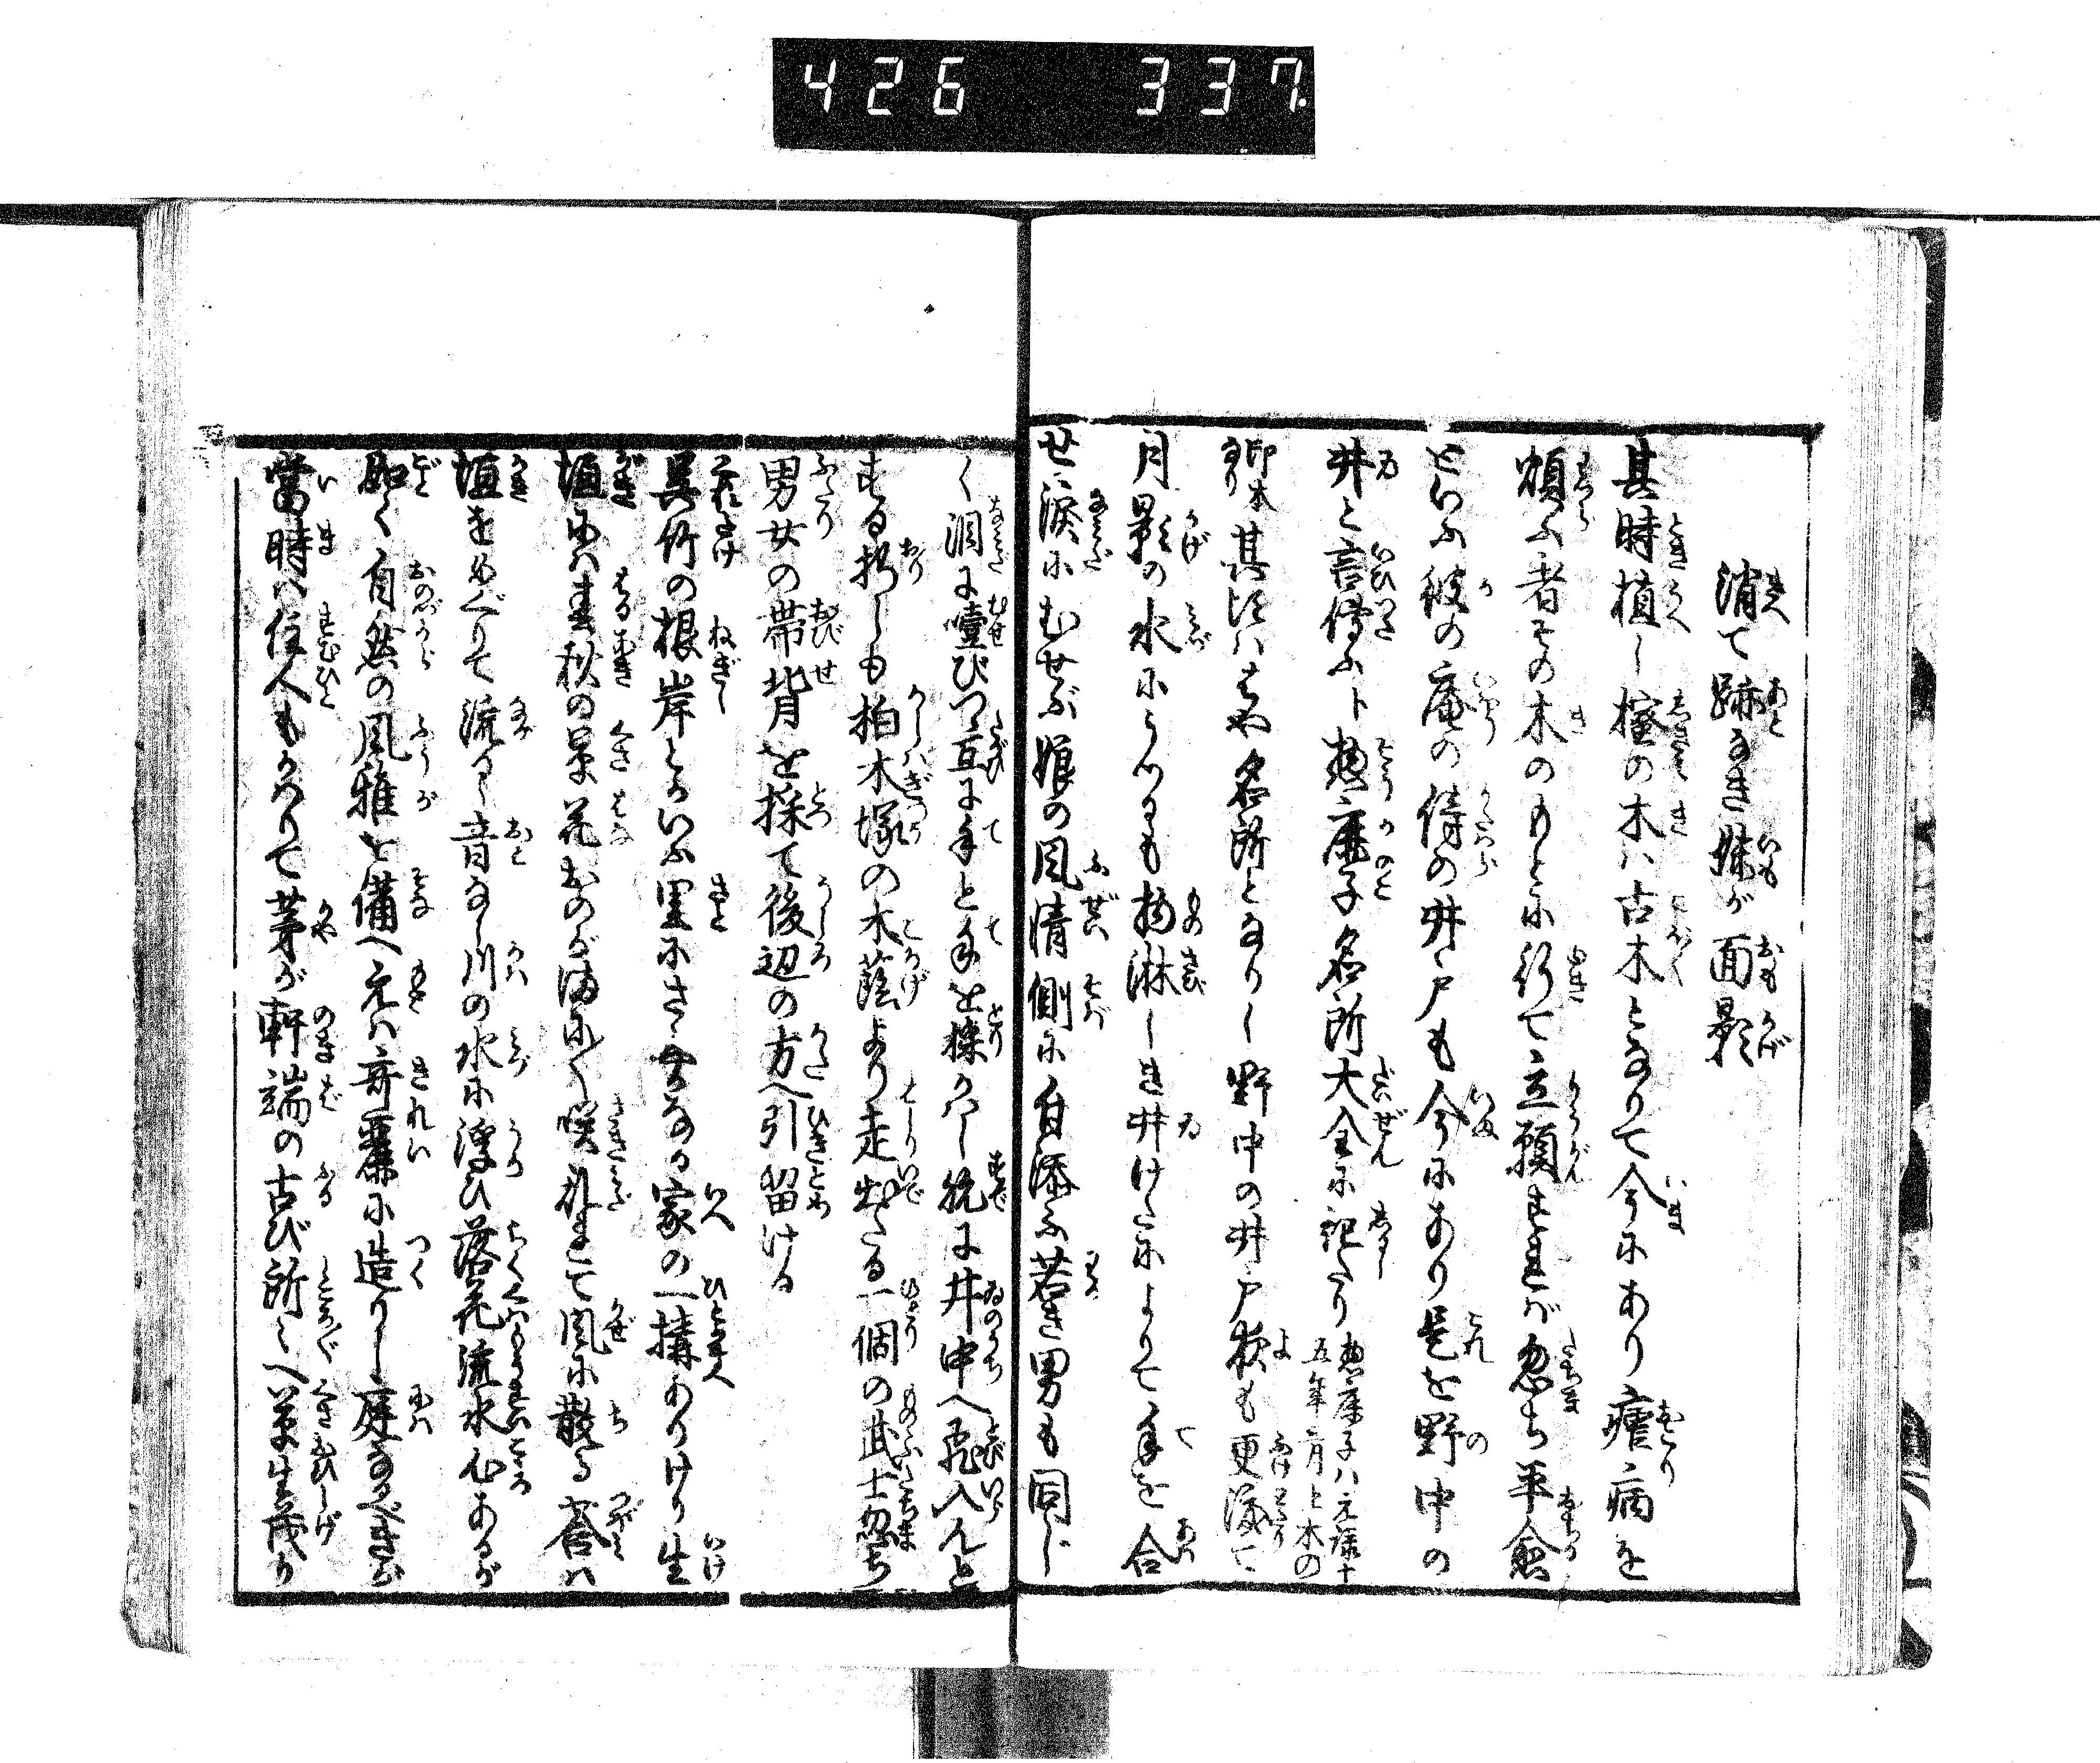 426 337
消て跡なき妹が面影
其時植し樒の木は古木となりて今にあり瘧病を
煩ふ者その木のもとに行て立願すれば忽ち平愈
といふ彼の庵の傍の井戸も今にあり是を野中の
井と言傳ふト惣鹿子名所大全に記たり惣鹿子ハ元禄十
五年二月上木の
印本
なり其頃ははや名所となりし野中の井戸夜も更渡て
月影の水にうつるも物淋しき井げたによりて手を合
せ涙にむせぶ娘の風情側に付添ふ若き男も同じ
く泪に噎びつゝ互に手と手を採かはし既に井中へ飛入んと
する折しも柏木塚の木蔭より走出たる一個の武士忽ち
男女の帯背を採て後辺の方へ引留ける
呉竹の根岸といふ里にさゝやかなる家の一構ありけり生
垣には春秋の草花おのがまに〳〵咲乱れて風に散る莟は
垣をめぐりて流るゝ音なし川の水に浮ひ落花流水心あるが
如く自然の風雅を備へ元は奇麗に造りし庭なるべきが
當時は住人もかはりて茅が軒端の古び所々へ草生茂り